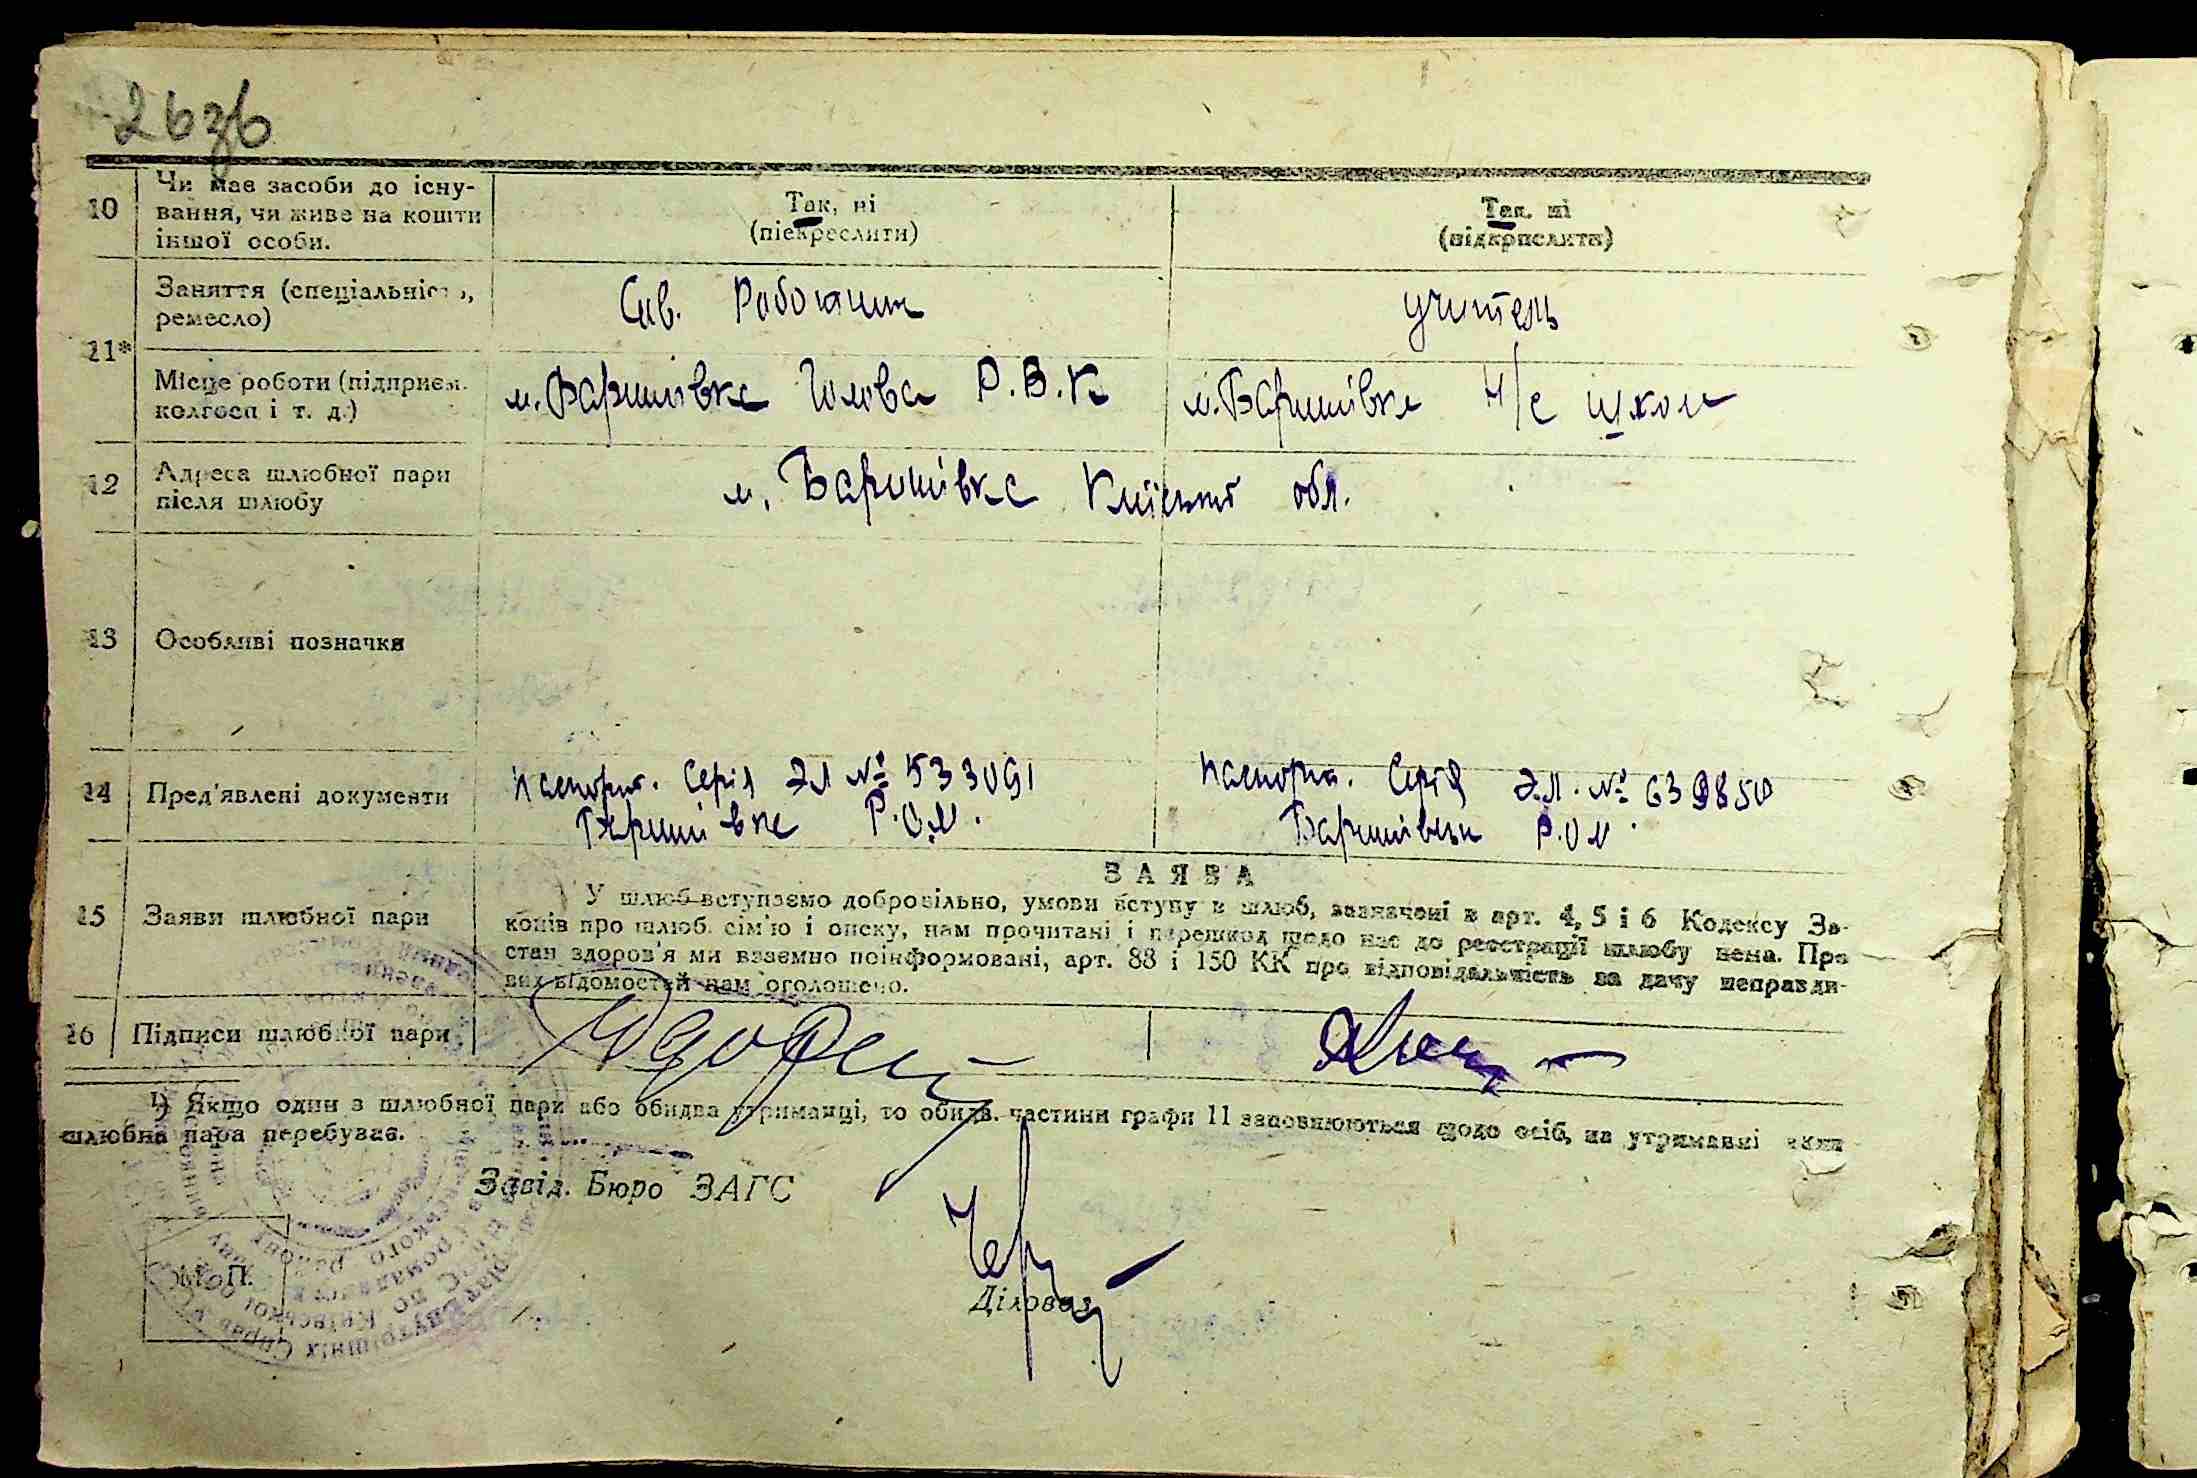 26зв
10 Чи має засоби до існу-
вання, чи живе на кошти
іншої особи.
Так, ні
(підкреслити)
Так, ні
(підкреслити)
11*
Заняття (спеціальність,
ремесло)
Сов. Работник
учитель
Місце роботи (підприєм.
колгосп і т. д.)
м. Баришівка Голова Р.В.К
м. Баришівка Н/с школа
12 Адреса шлюбної пари
після шлюбу
м. Баришівка Київської обл.
13 Особливі позначки
14 Пред'явлені документи
паспорт. Серія ЭЛ № 533091
Баришівке Р.О.М.
паспорт. Серія Э.Л. № 639850
Баришівськ Р.О.М.
ЗАЯВА
15 Заяви шлюбної пари
У шлюб вступаємо добровільно, умови вступу в шлюб, зазначені в арт. 4, 5 і 6 Кодексу За-
конів про шлюб, сім'ю і опіку, нам прочитані і перешкод щодо нас до реєстрації шлюбу нема. Про
стан здоров'я ми взаємно поінформовані, арт. 88 і 150 КК про відповідальність за дачу неправди-
вих відомостей нам оголошено.
16 Підписи шлюбної пари
¹) Якщо один з шлюбної пари або обидва утриманці, то обидв. частини графи 11 заповнюються щодо осіб, на утриманні яких
шлюбна пара перебуває.
Завід. Бюро ЗАГС
Діловод
М. П.